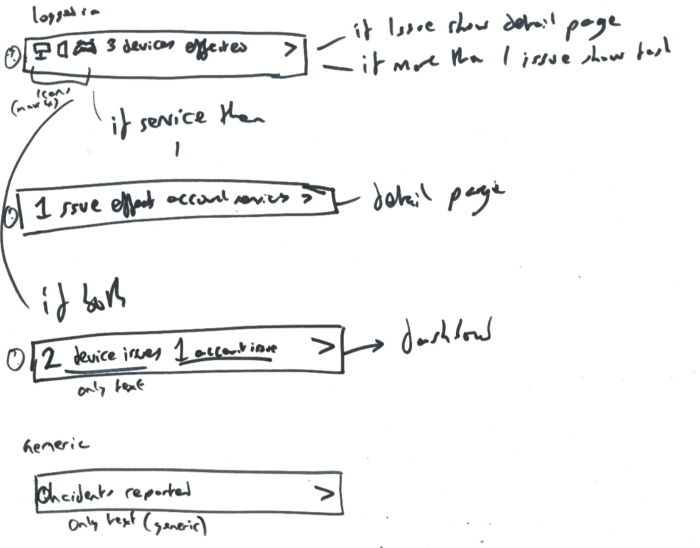 logged in
3 devices effected >
if 1 issue show detail page
if more than 1 issue show
icons
(max 4)
if service then
1 issue effect account services >
detail page
if both
2 device issues 1 account issue >
dashboard
only text
Generic
Incidents reported >
only text (generic)